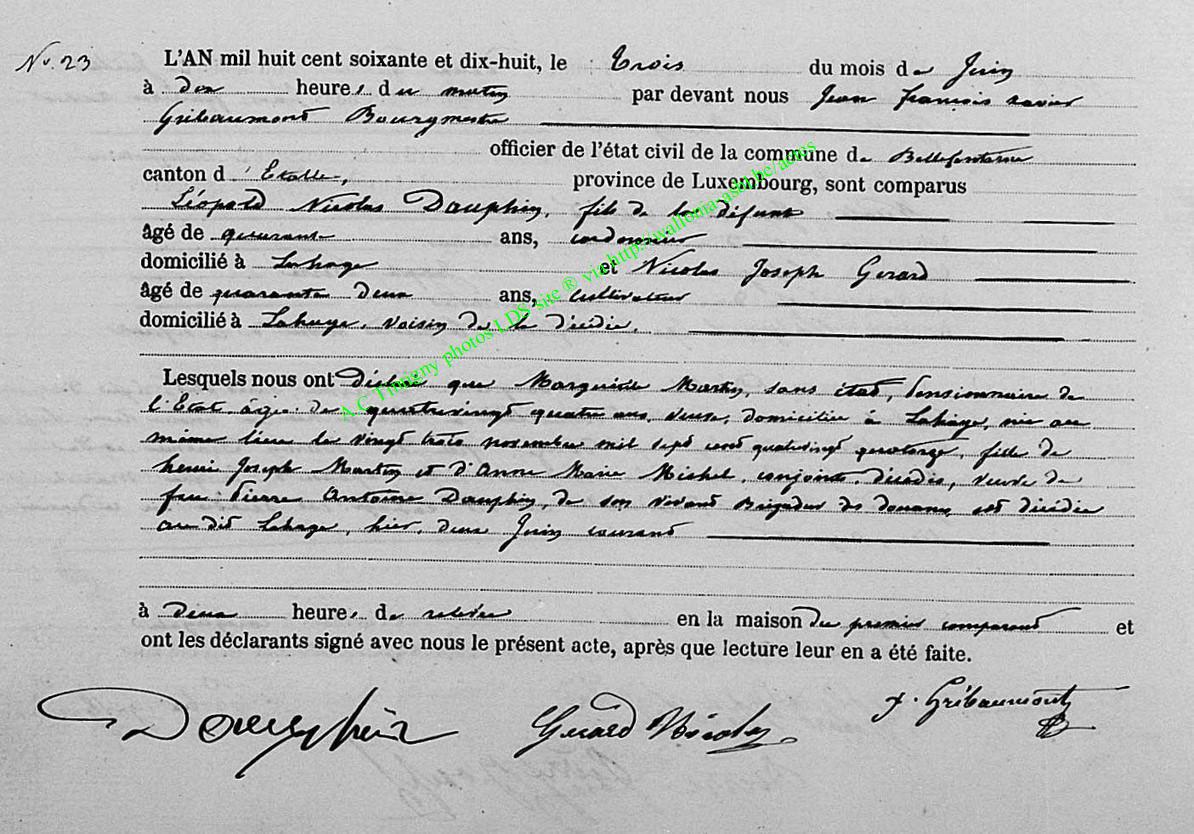 No. 23
L'AN mil huit cent soixante et dix-huit, le trois du mois de Juin
à dix heures du matin par devant nous Jean françois xavier
Gribaumont Bourgmestre
officier de l'état civil de la commune de Bellefontaine
canton d'Etalle, province de Luxembourg, sont comparus
Léopold Nicolas Dauphin, fils de la défunte
âgé de quarante ans, cordonnier
domicilié à Lahage et Nicolas Joseph Gerard
âgé de quarante deux ans, cultivateur
domicilié à Lahage, voisin de la décédée.
Lesquels nous ont déclaré que Marguerite Martin, sans état, pensionnaire de
l'Etat, âgée de quatrevingt quatre ans, veuve, domiciliée à Lahage, née au
même lieu le vingt trois novembre mil sept cent quatrevingt quatorze, fille de
henri Joseph Martin et d'Anne Marie Michel, conjoints, décédés, veuve de
feu Pierre Antoine Dauphin, de son vivant Brigadier des douanes, est décédée
audit Lahage, hier, deux Juin courant
à deux heures de relevée en la maison du premier comparant et
ont les déclarants signé avec nous le présent acte, après que lecture leur en a été faite.
Dauphin Gerard Nicolas x. Gribaumont
A.C Timigny photos LDS site ® via http://wallonia-asbl.be/actes